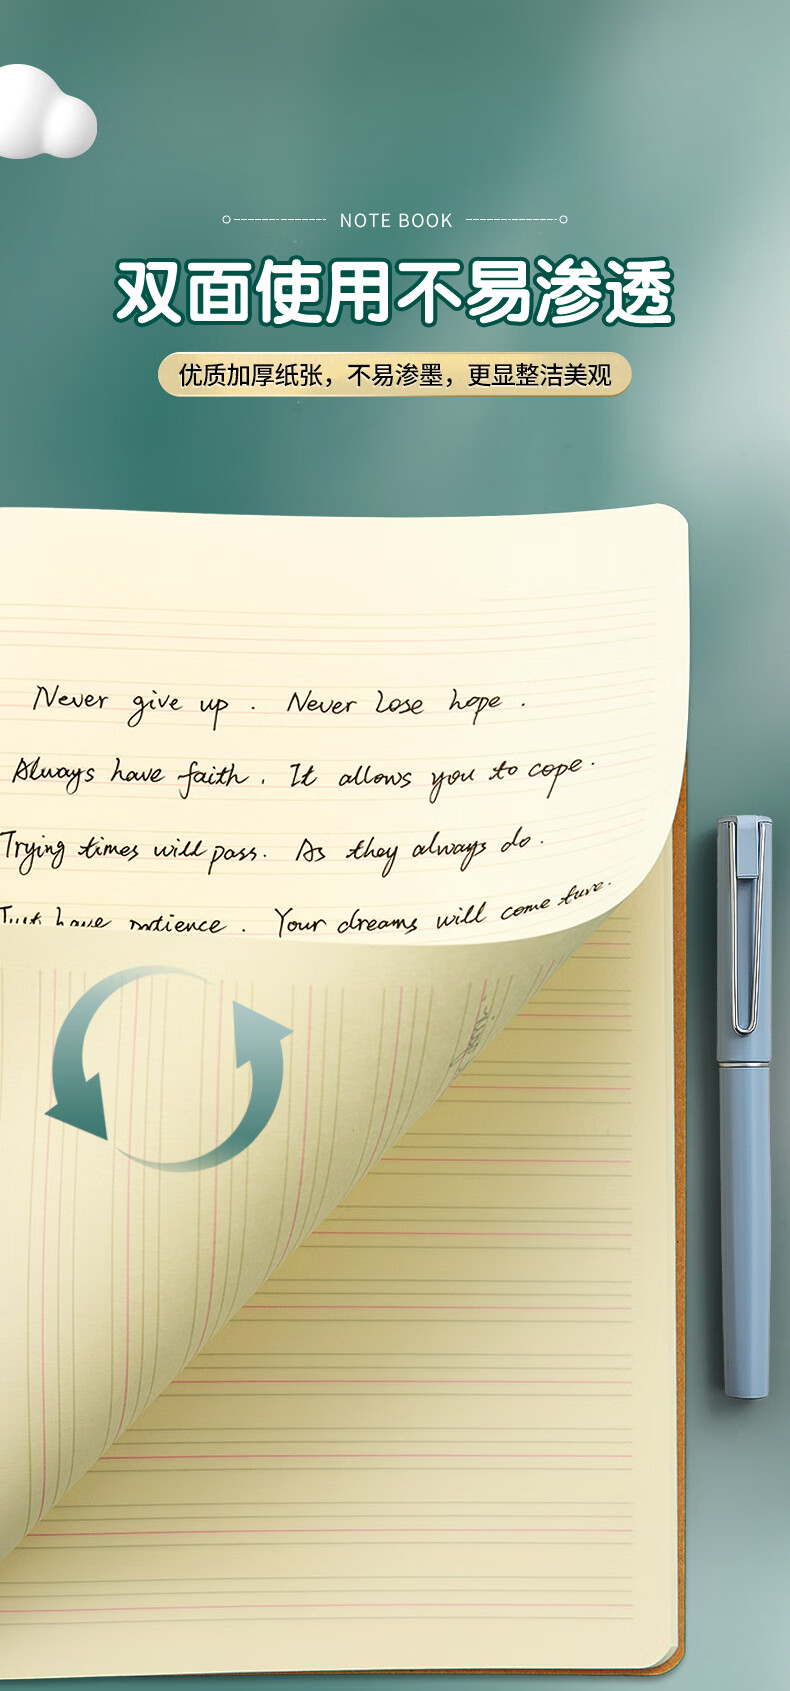 NOTE BOOK
双面使用不易渗透
优质加厚纸张，不易渗墨，更显整洁美观
Never give up. Never lose hope.
Always have faith. It allows you to cope.
Trying times will pass. As they always do.
Just have patience. Your dreams will come ture.